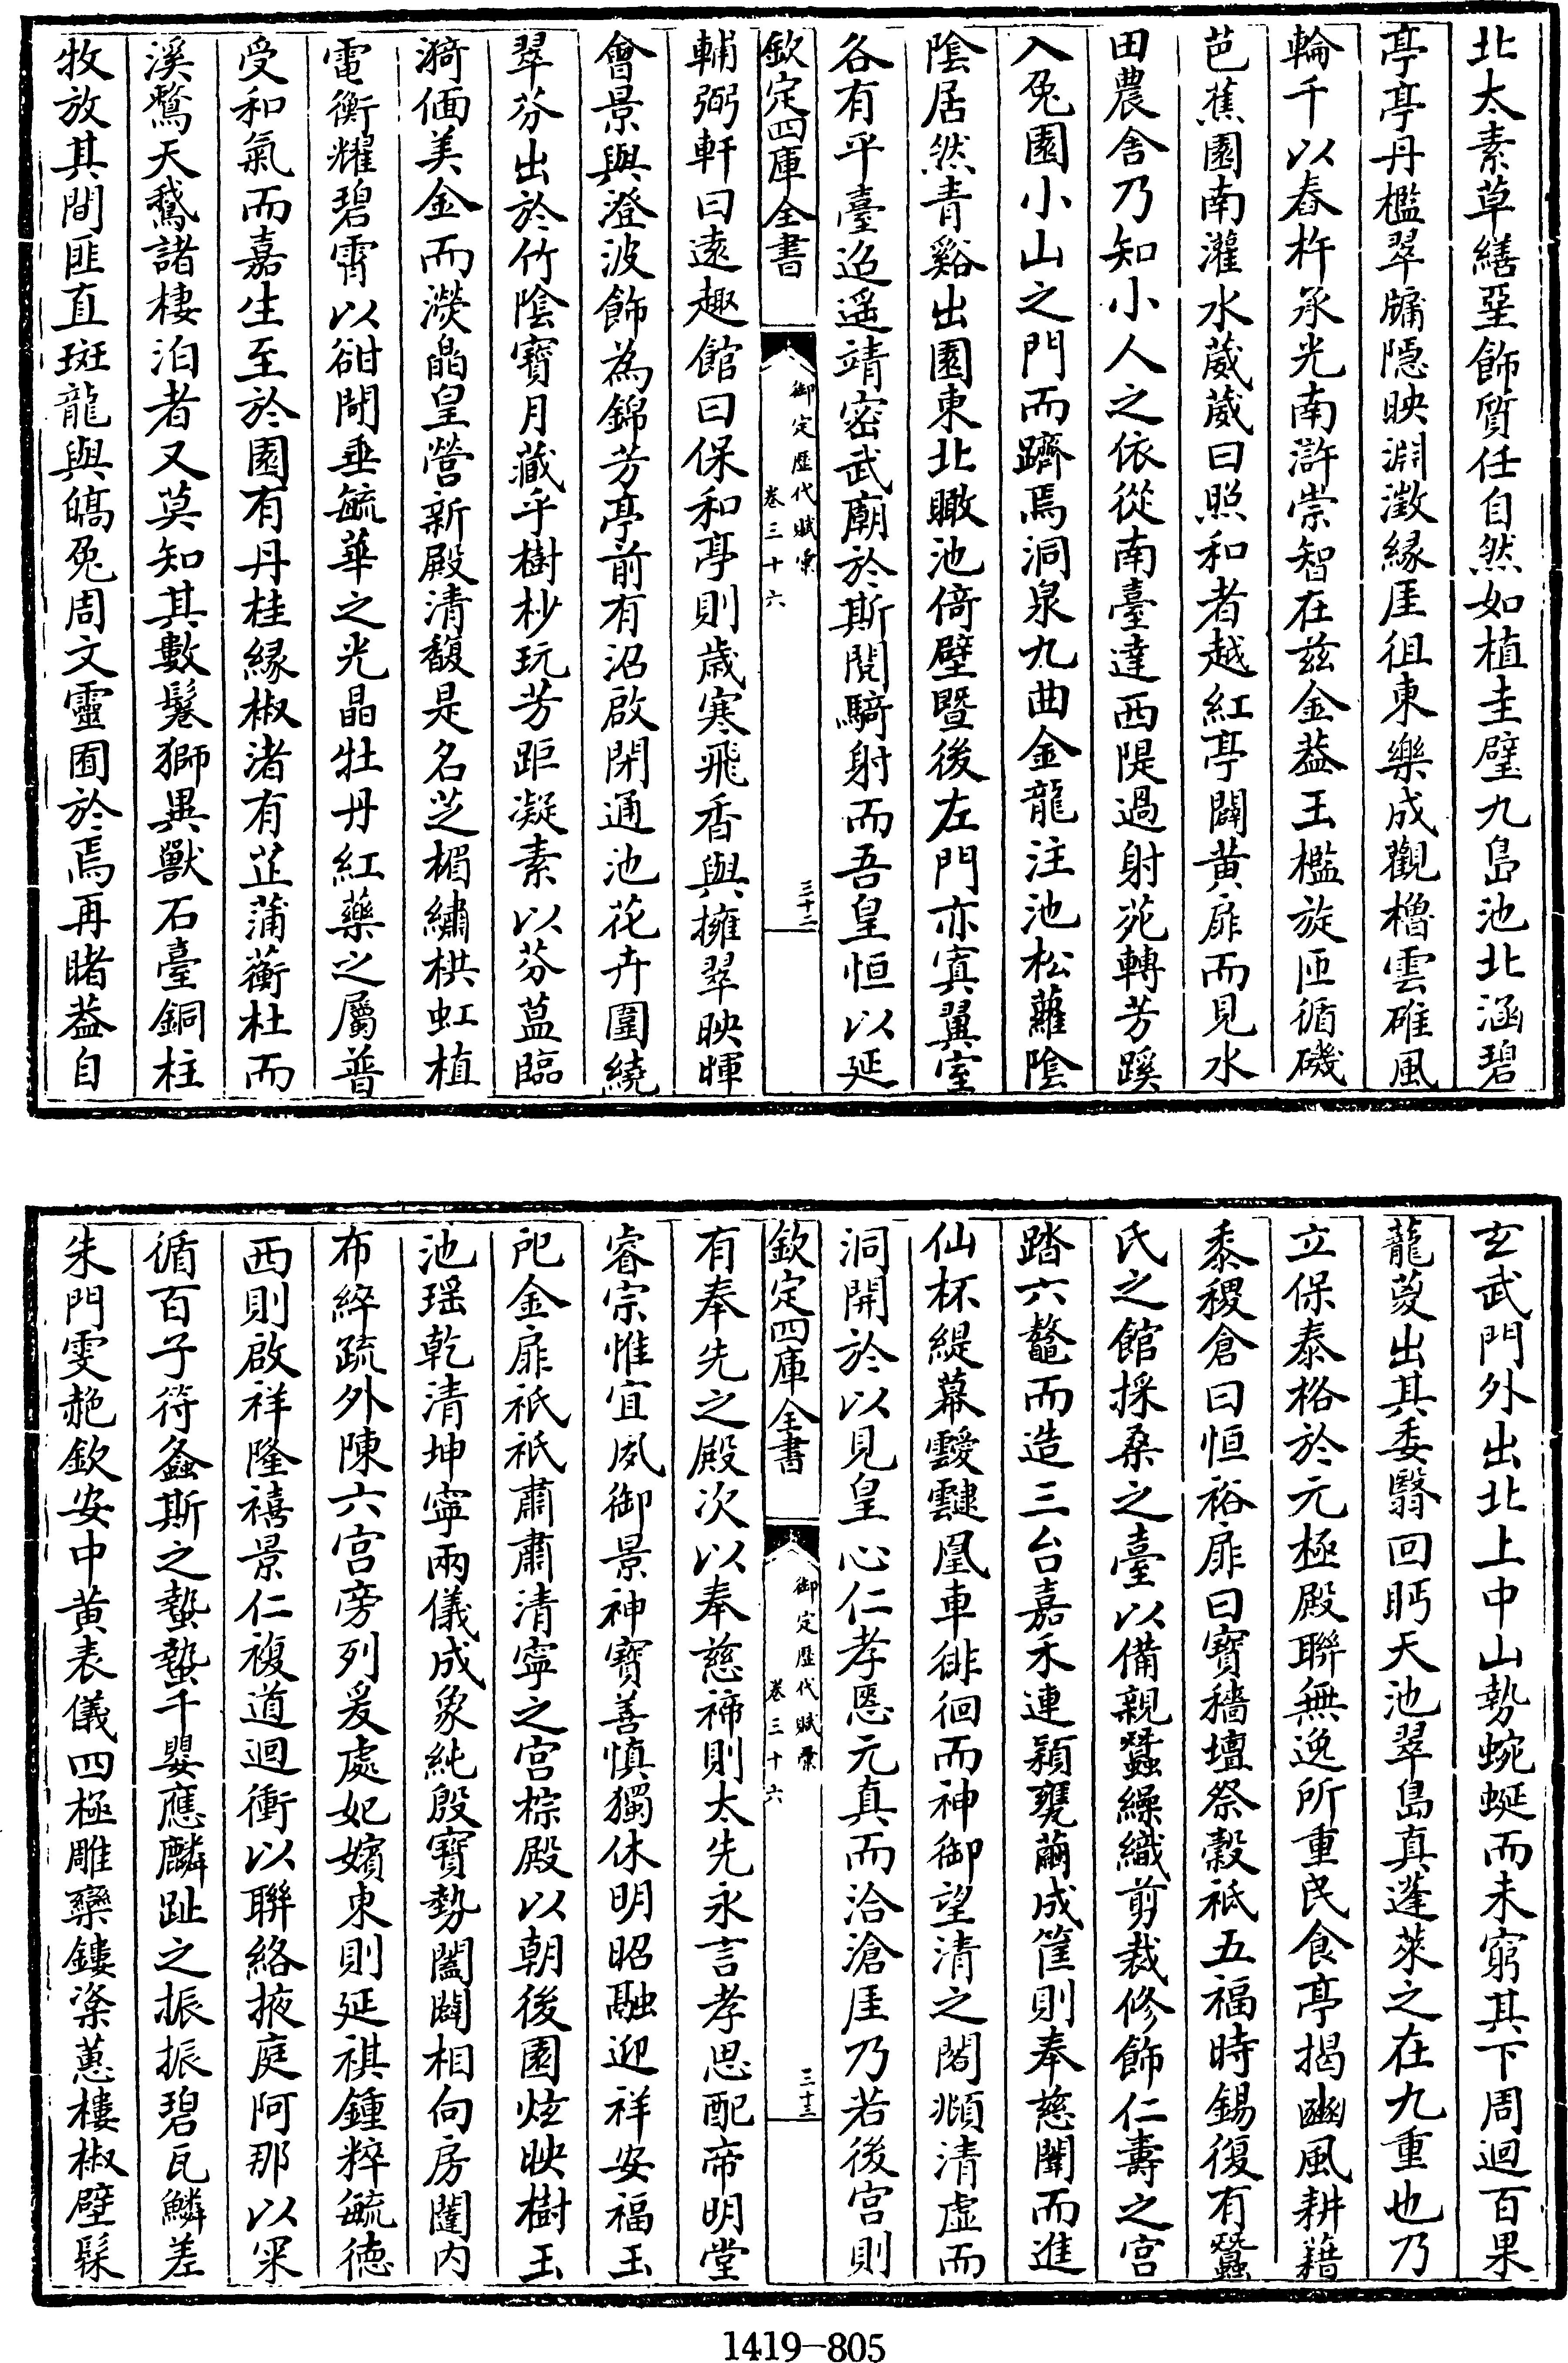 北太素草繕堊飾質任自然如植圭璧九島池北涵碧
亭亭丹檻翠牖隱映淵澂緣厓徂東樂成觀櫓雲碓風
輪千以舂杵承光南滸崇智在兹金葢玉檻旋匝循磯
芭蕉園南灌水葳葳曰照和者越紅亭闢黄扉而見水
田農舎乃知小人之依從南臺達西隄過射苑轉芳蹊
入兔園小山之門而躋焉洞泉九曲金龍注池松蘿陰
陰居然青谿出園東北瞰池倚壁曁後左門亦寘翼室
各有平臺迢遥靖密武廟於斯閲騎射而吾皇恒以延
欽定四庫全書
御定歴代賦彙
卷三十六
三十二
輔弼軒曰遠趣館曰保和亭則歳寒飛香與擁翠映暉
會景與澄波飾為錦芳亭前有沼啟閉通池花卉圍繞
翠芬出於竹陰寳月藏乎樹杪玩芳距凝素以芬葢臨
漪偭美金而濙皛皇營新殿清馥是名芝楣繡栱虹植
電衡耀碧霄以谽閜垂毓華之光晶牡丹紅藥之屬普
受和氣而嘉生至於園有丹桂緣椒渚有芷蒲蘅杜而
溪鶩天鵞諸棲泊者又莫知其數鬈獅異獸石臺銅柱
牧放其間匪直斑龍與皜兔周文靈囿於焉再睹葢自
玄武門外出北上中山勢蜿蜒而未窮其下周迴百果
蘢葼出其委翳回眄天池翠島真蓬萊之在九重也乃
立保泰格於元極殿聯無逸所重民食亭揭豳風耕藉
黍稷倉曰恒裕扉曰寳穡壇祭穀祗五福時錫復有蠶
氏之館採桑之臺以備親蠶繰織剪裁修飾仁壽之宫
踏六鼇而造三台嘉禾連穎甕繭成筐則奉慈闈而進
仙杯緹幕靉靆凰車徘徊而神御望清之閣頫清虚而
洞開於以見皇心仁孝慝元真而洽滄厓乃若後宫則
欽定四庫全書
御定歴代賦彙
卷三十六
三十三
有奉先之殿次以奉慈禘則太先永言孝思配帝明堂
睿宗惟宜夙御景神寳善慎獨休明昭融迎祥安福玉
戺金扉祇祇肅肅清寧之宫棕殿以朝後園炫映樹玉
池瑶乾清坤寧兩儀成象純殷寳勢闔闢相向房闥内
布綷疏外陳六宫旁列爰處妃嬪東則延祺鍾粹毓徳
西則啟祥隆禧景仁複道迴衝以聯絡掖庭阿那以罙
循百子符螽斯之蟄蟄千嬰應麟趾之振振碧瓦鱗差
朱門雯赩欽安中黄表儀四極雕欒鏤楶蕙樓椒壁髹
1419-805